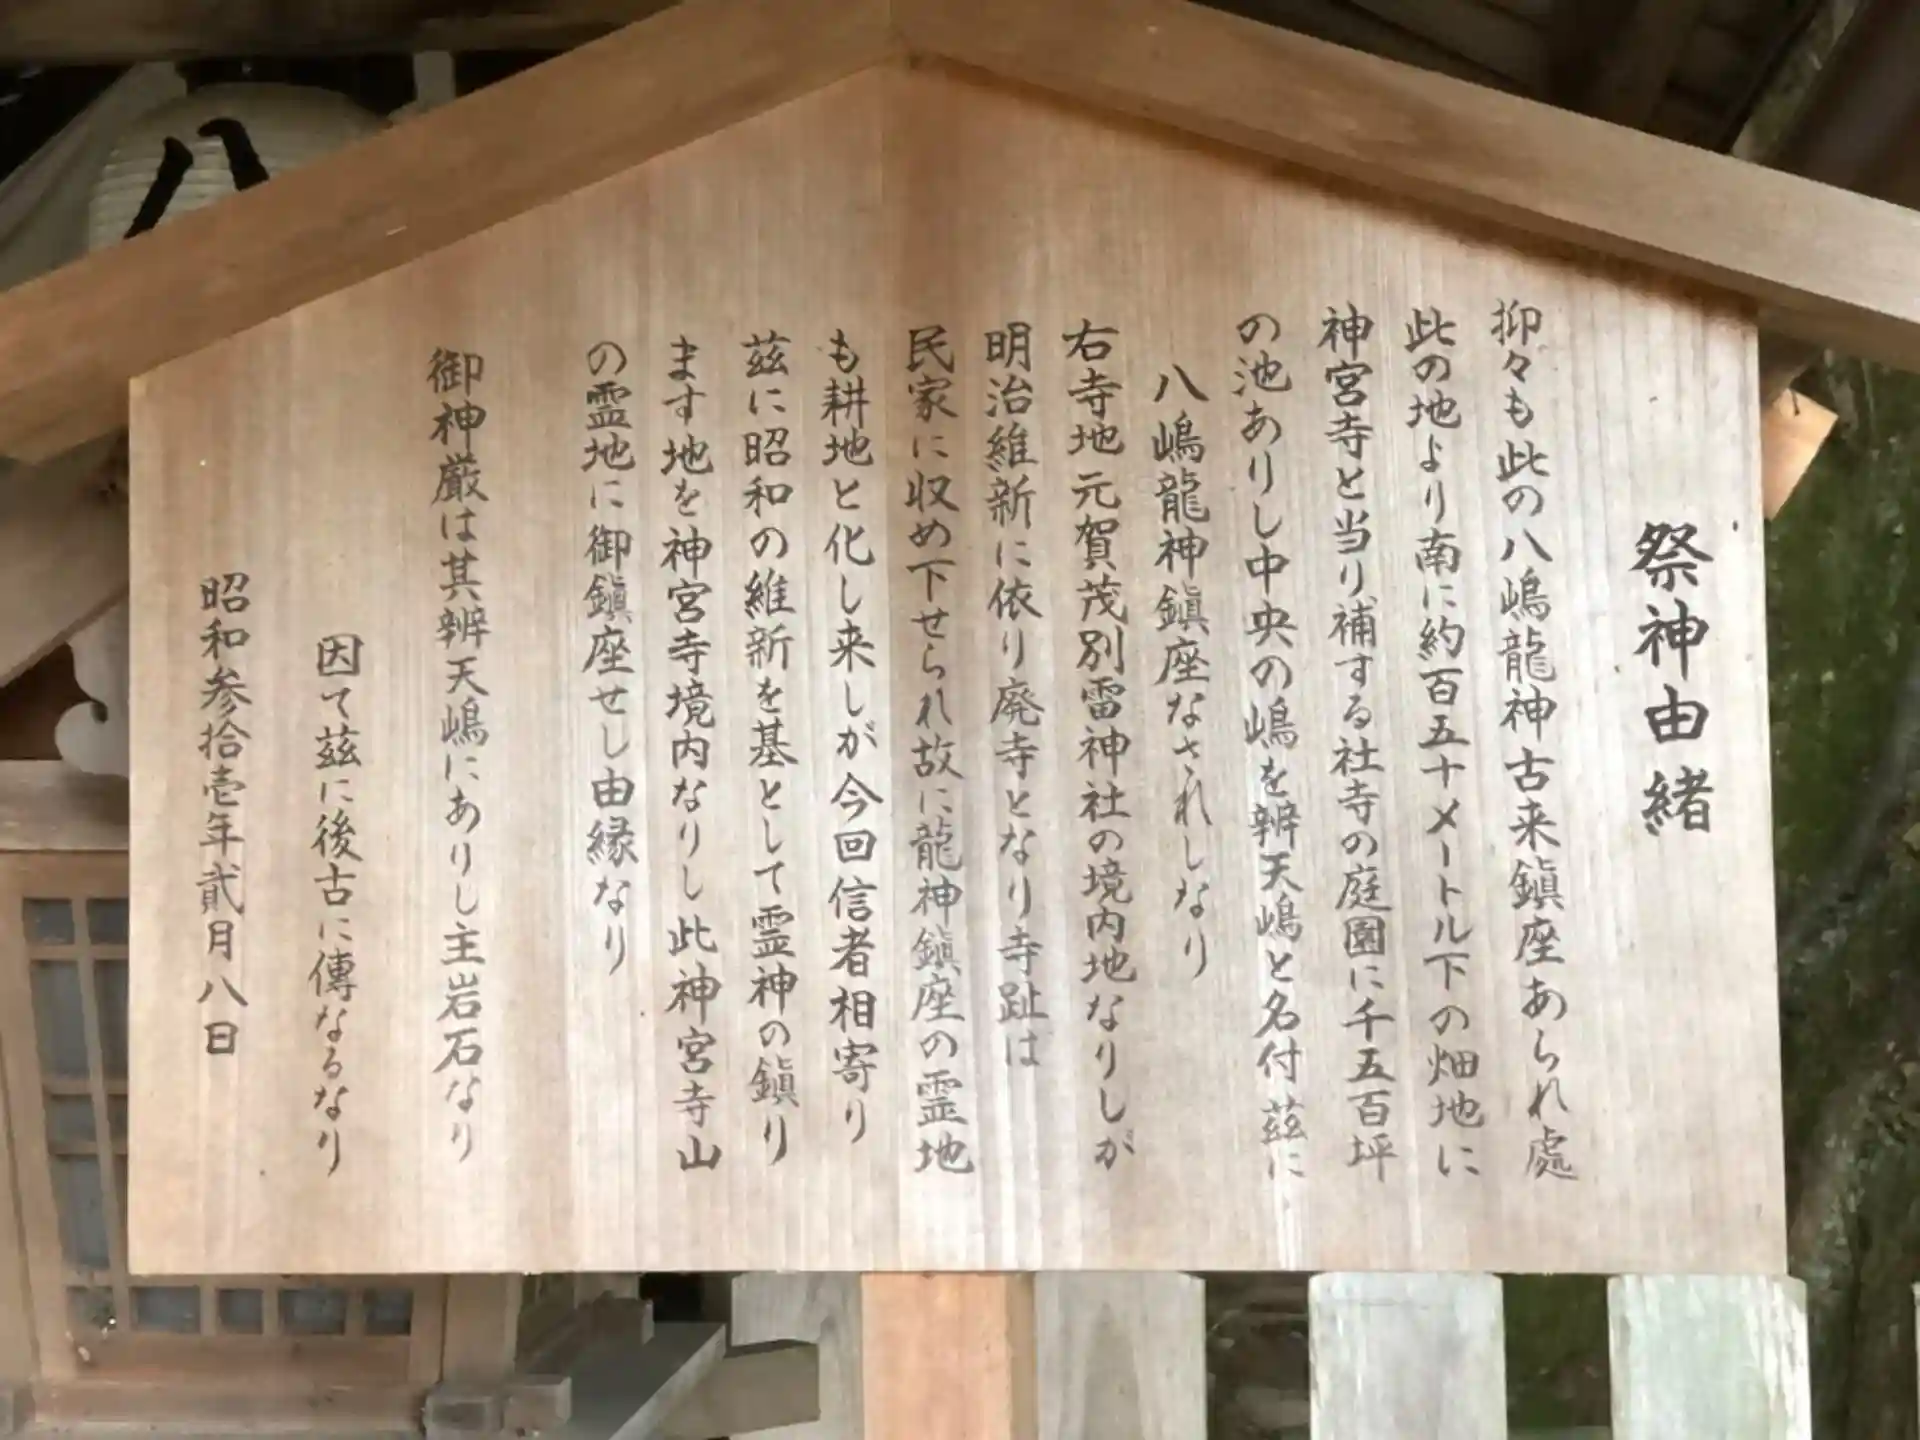 祭神由緒
抑々も此の八嶋龍神古来鎭座あられ處
此の地より南に約百五十メートル下の畑地に
神宮寺と当り補する社寺の庭園に千五百坪
の池ありし中央の嶋を辨天嶋と名付茲に
八嶋龍神鎭座なされしなり
右寺地元賀茂別雷神社の境内地なりしが
明治維新に依り廃寺となり寺趾は
民家に収め下せられ故に龍神鎭座の霊地
も耕地と化し来しが今回信者相寄り
茲に昭和の維新を基として霊神の鎭り
ます地を神宮寺境内なりし此神宮寺山
の霊地に御鎭座せし由縁なり
御神厳は其辨天嶋にありし主岩石なり
因て茲に後古に傳なるなり
昭和参拾壱年貮月八日
八